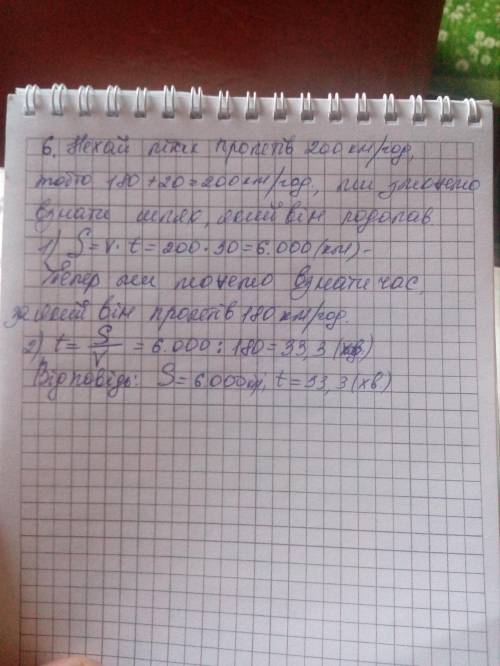 6. Нехай літак пролетів 200 км/год,
тобто 180 + 20 = 200 км/год., ми зможемо
взнати шлях, який він подолав
1) S = v · t = 200 · 30 = 6.000 (км) -
Тепер ми можемо взнати час,
за який він пролетів 180 км/год.
2) t = S/V = 6.000 : 180 = 33,3 (хв)
Відповідь: S = 6.000км, t = 33,3 (хв)